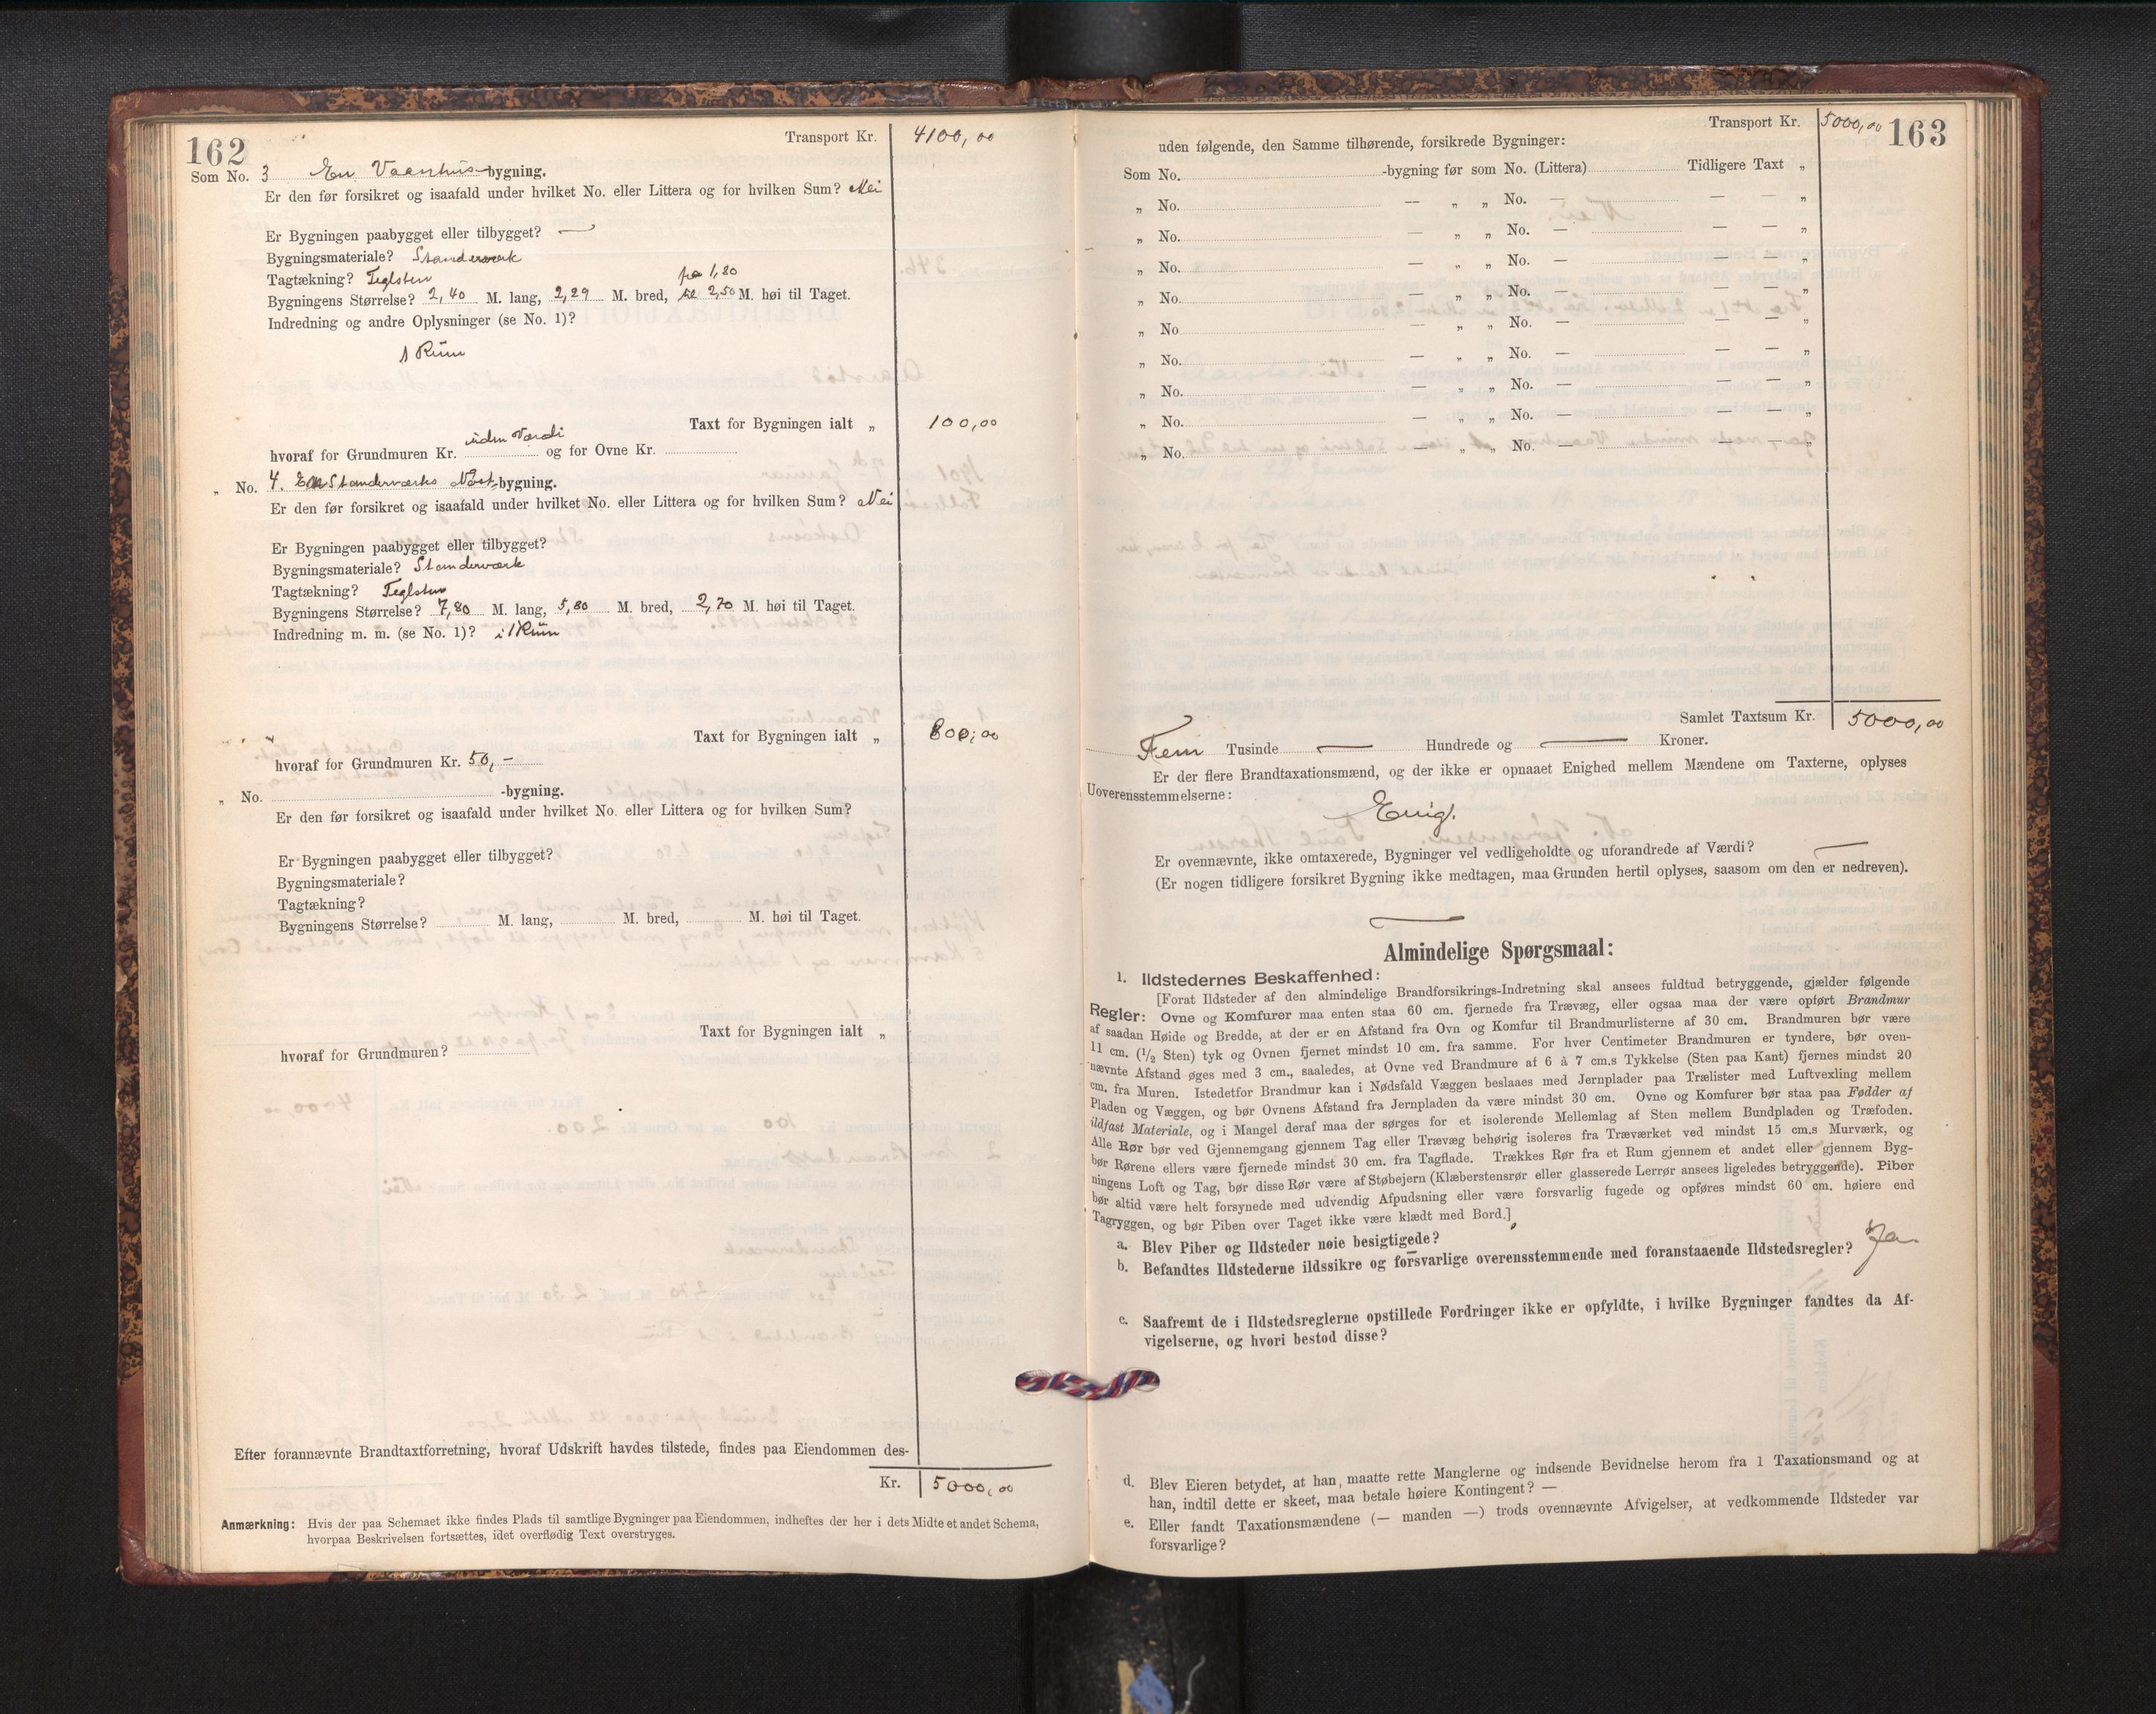 162
Transport Kr. 4100,00
Som No. 3 En Vaanhus-bygning.
Er den før forsikret og isaafald under hvilket No. eller Littera og for hvilken Sum? Nei
Er Bygningen paabygget eller tilbygget? —
Bygningsmateriale? Standerværk
Tagtækning? Teglsten
fra 1,80
Bygningens Størrelse? 2,40 M. lang, 2,29 M. bred, til 2,50 M. høi til Taget.
Indredning og andre Oplysninger (se No. 1)?
1 Rum
Taxt for Bygningen ialt „ 100,00
uden Værdi
hvoraf for Grundmuren Kr. og for Ovne Kr.
„ No. 4. En Standerværks Nøst-bygning.
Er den før forsikret og isaafald under hvilket No. eller Littera og for hvilken Sum? Nei
Er Bygningen paabygget eller tilbygget?
Bygningsmateriale? Standerværk
Tagtækning? Teglsten
Bygningens Størrelse? 7,80 M. lang, 5,80 M. bred, 2,70 M. høi til Taget.
Indredning m. m. (se No. 1)? i 1 Rum
Taxt for Bygningen ialt „ 800,00
hvoraf for Grundmuren Kr. 50,-
„ No. -bygning.
Er den før forsikret og isaafald under hvilket No. eller Littera og for hvilken Sum?
Er Bygningen paabygget eller tilbygget?
Bygningsmateriale?
Tagtækning?
Bygningens Størrelse? M. lang, M. bred, M. høi til Taget.
Taxt for Bygningen ialt „
hvoraf for Grundmuren?
Efter forannævnte Brandtaxtforretning, hvoraf Udskrift havdes tilstede, findes paa Eiendommen des-
Kr. 5000,00
Anmærkning: Hvis der paa Schemaet ikke findes Plads til samtlige Bygninger paa Eiendommen, indheftes der her i dets Midte et andet Schema,
hvorpaa Beskrivelsen fortsættes, idet overflødig Text overstryges.
Transport Kr. 5000,00 163
uden følgende, den Samme tilhørende, forsikrede Bygninger:
Som No. -bygning før som No. (Littera) Tidligere Taxt „
„ No. — „ „ No. — — — „
„ No. — „ „ No. — — — „
„ No. — „ „ No. — — — „
„ No. — „ „ No. — — — „
„ No — „ „ No. — — — „
„ No. — „ „ No. — — — „
„ No. — „ „ No. — — — „
„ No. — „ „ No. — — — „
„ No. — „ „ No. — — — „
Samlet Taxtsum Kr. 5000,00
Fem Tusinde — Hundrede og — Kroner.
Er der flere Brandtaxationsmænd, og der ikke er opnaaet Enighed mellem Mændene om Taxterne, oplyses
Uoverensstemmelserne:
Enig.
Er ovennævnte, ikke omtaxerede, Bygninger vel vedligeholdte og uforandrede af Værdi? —
(Er nogen tidligere forsikret Bygning ikke medtagen, maa Grunden hertil oplyses, saasom om den er nedreven).
—
Almindelige Spørgsmaal:
1. Ildstedernes Beskaffenhed:
[Forat Ildsteder af den almindelige Brandforsikrings-Indretning skal ansees fuldtud betryggende, gjælder følgende
Regler: Ovne og Komfurer maa enten staa 60 cm. fjernede fra Trævæg, eller ogsaa maa der være opført Brandmur
af saadan Høide og Bredde, at der er en Afstand fra Ovn og Komfur til Brandmurlisterne af 30 cm. Brandmuren bør være
11 cm. (1/2 Sten) tyk og Ovnen fjernet mindst 10 cm. fra samme. For hver Centimeter Brandmuren er tyndere, bør oven-
nævnte Afstand øges med 3 cm., saaledes, at Ovne ved Brandmure af 6 à 7 cm.s Tykkelse (Sten paa Kant) fjernes mindst 20
cm. fra Muren. Istedetfor Brandmur kan i Nødsfald Væggen beslaaes med Jernplader paa Trælister med Luftvexling mellem
Pladen og Væggen, og bør Ovnens Afstand fra Jernpladen da være mindst 30 cm. Ovne og Komfurer bør staa paa Fødder af
ildfast Materiale, og i Mangel deraf maa der sørges for et isolerende Mellemlag af Sten mellem Bundpladen og Træfoden.
Alle Rør bør ved Gjennemgang gjennem Tag eller Trævæg behørig isoleres fra Træværket ved mindst 15 cm.s Murværk, og
bør Rørene ellers være fjernede mindst 30 cm. fra Tagflade. Trækkes Rør fra et Rum gjennem et andet eller gjennem Byg-
ningens Loft og Tag, bør disse Rør være af Støbejern (Klæberstensrør eller glasserede Lerrør ansees ligeledes betryggende). Piber
bør altid være helt forsynede med udvendig Afpudsning eller være forsvarlig fugede og opføres mindst 60 cm. høiere end
Tagryggen, og bør Piben over Taget ikke være klædt med Bord.]
a. Blev Piber og Ildsteder nøie besigtigede?
b. Befandtes Ildstederne ildssikre og forsvarlige overensstemmende med foranstaaende Ildstedsregler? Ja
c. Saafremt de i Ildstedsreglerne opstillede Fordringer ikke er opfyldte, i hvilke Bygninger fandtes da Af-
vigelserne, og hvori bestod disse?
d. Blev Eieren betydet, at han maatte rette Manglerne og indsende Bevidnelse herom fra 1 Taxationsmand og at
han, indtil dette er skeet, maa betale høiere Kontingent? —
e. Eller fandt Taxationsmændene (— manden —) trods ovennævnte Afvigelser, at vedkommende Ildsteder var
forsvarlige?